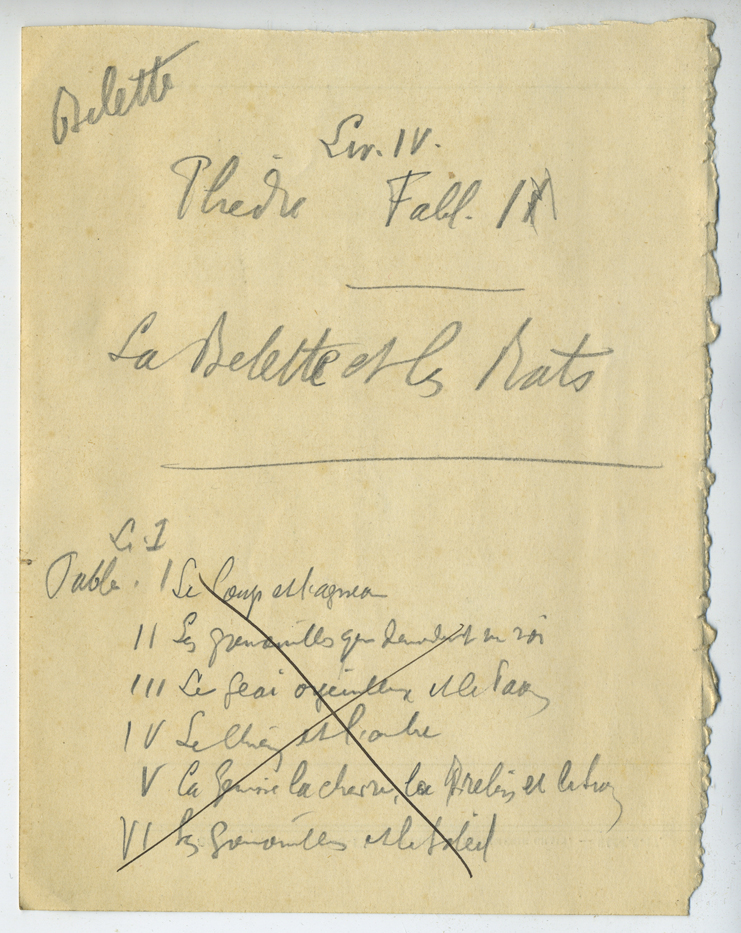 Belette
Liv. IV.
Phèdre Fabl. II
La Belette et les Rats
Li. I
Fable. I Le Loup et l'agneau
II Les grenouilles qui demandent un roi
III Le Geai orgueilleux et le Paon
IV Le Chien et l'ombre
V La Genisse la chevre, la Brebis et le lion
VI Les grenouilles et le Soleil